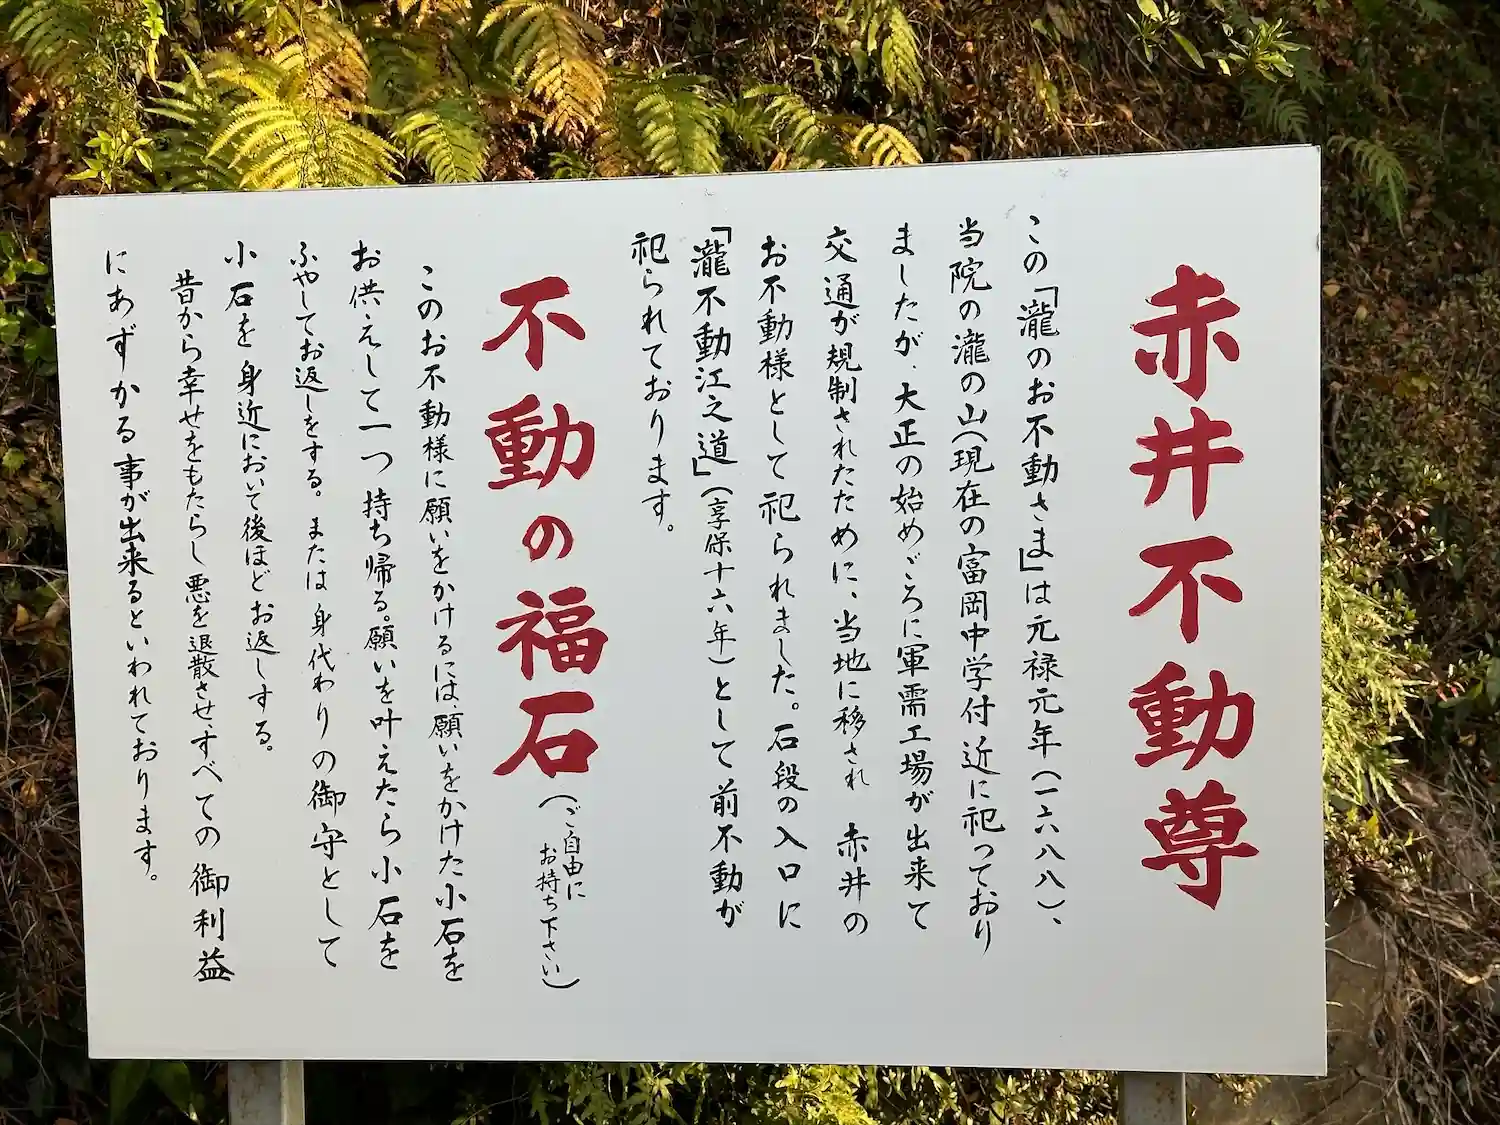 赤井不動尊
この「瀧のお不動さま」は元禄元年(一六八八)、
当院の瀧の山(現在の富岡中学付近に祀っており
ましたが、大正の始めごろに軍需工場が出来て
交通が規制されたために、当地に移され 赤井の
お不動様として祀られました。石段の入口に
「瀧不動江之道」(享保十六年)として前不動が
祀られております。
不動の福石(ご自由に
お持ち下さい)
このお不動様に願いをかけるには、願いをかけた小石を
お供えして一つ持ち帰る。願いを叶えたら小石を
ふやしてお返しをする。または身代わりの御守として
小石を身近において後ほどお返しする。
昔から幸せをもたらし悪を退散させ、すべての御利益
にあずかる事が出来るといわれております。